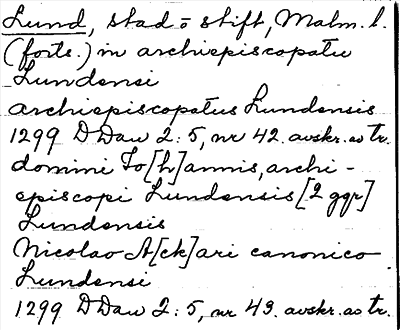 Lund, stad o stift, Malm. l.
(forts.) in archiepiscopatu
Lundensi
archiepiscopatus Lundensis
1299 DDan 2:5, nr 42. avskr. av tr.
domini Jo[h]annis, archi-
episcopi Lundensis [2 ggr]
Lundensis
Nicolao A[ck]ari canonico
Lundensi
1299 DDan 2:5, nr 43. avskr. av tr.